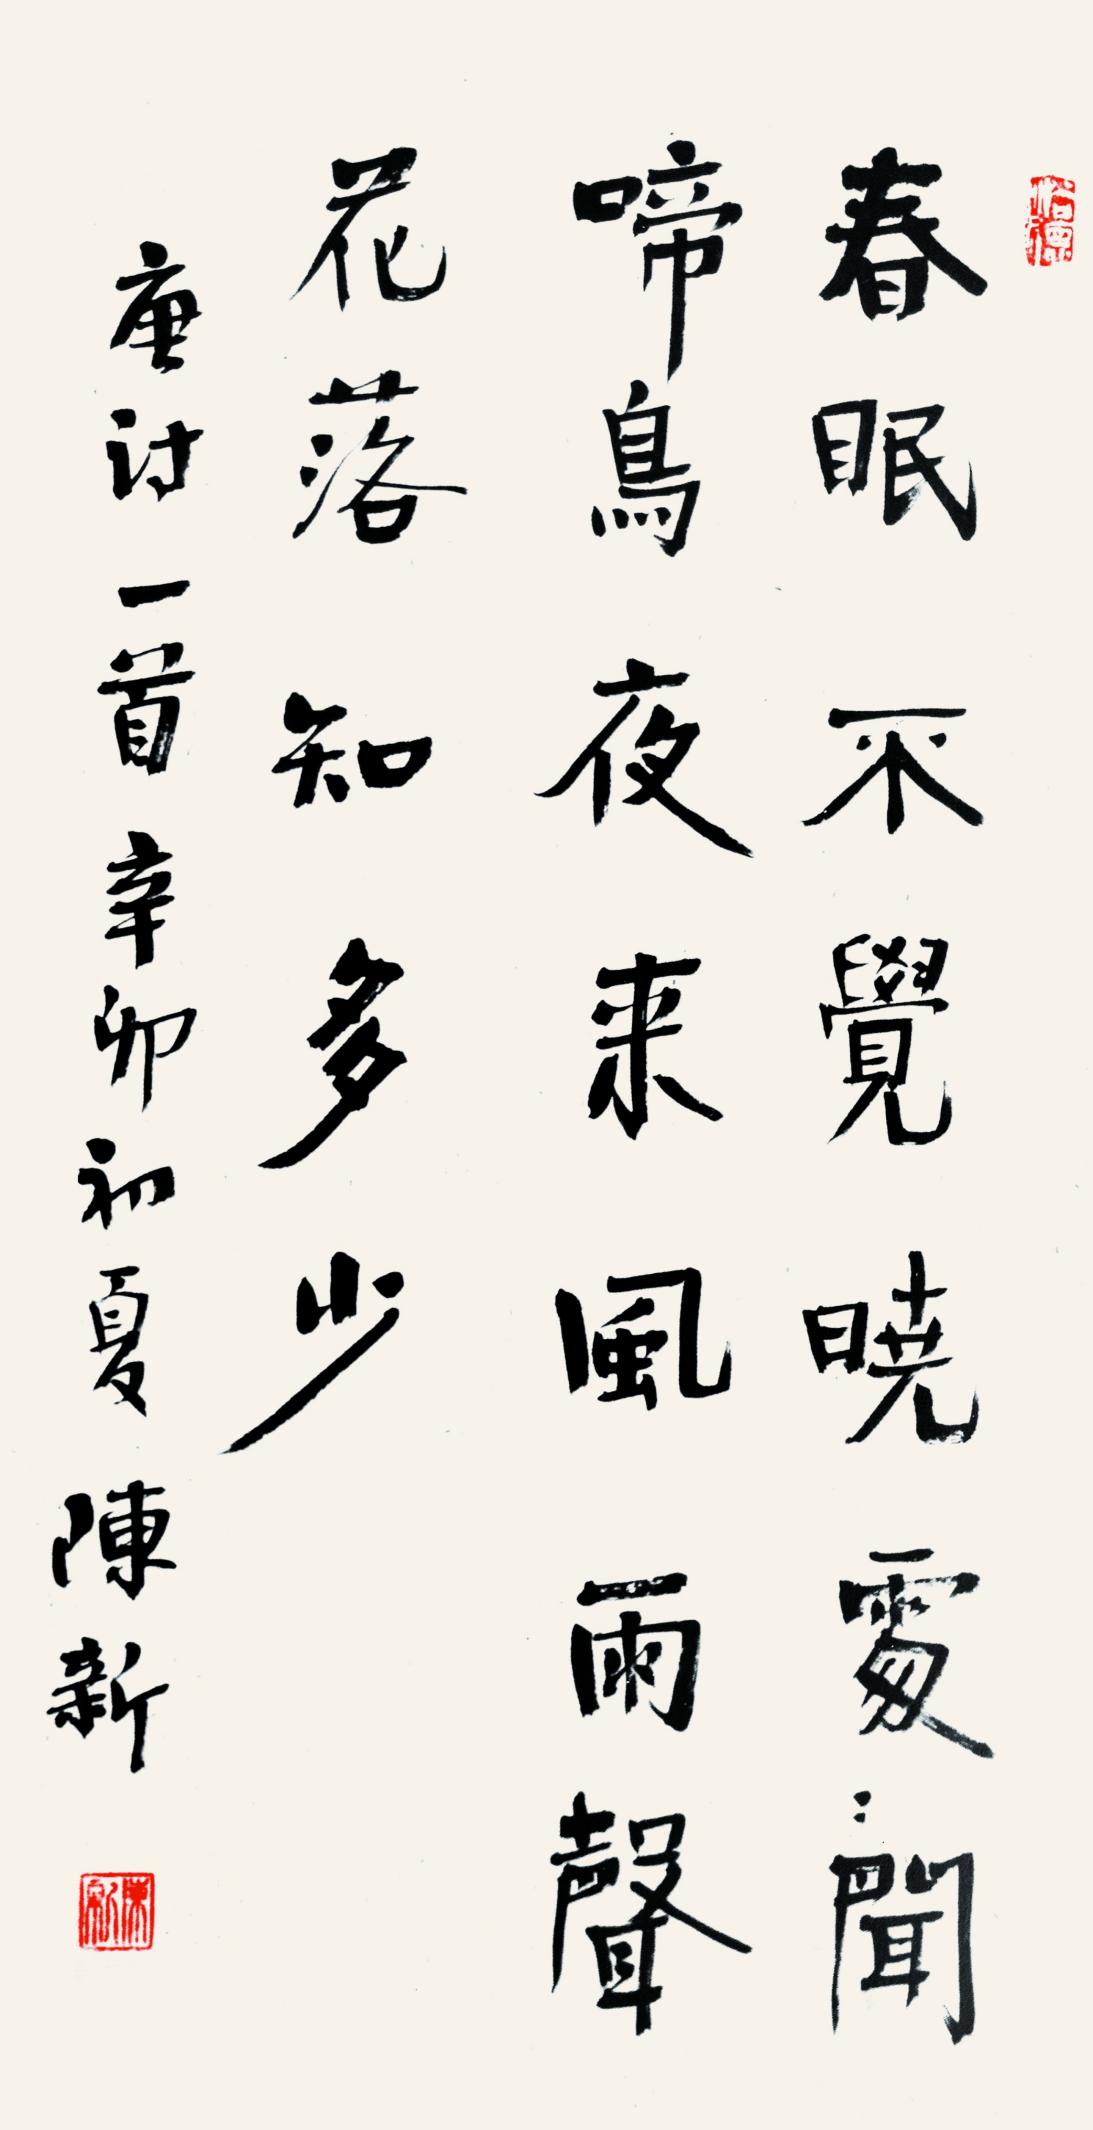 春眠不覺曉處處聞
啼鳥夜来風雨聲
花落知多少
唐诗一首辛卯初夏陳新
陳新